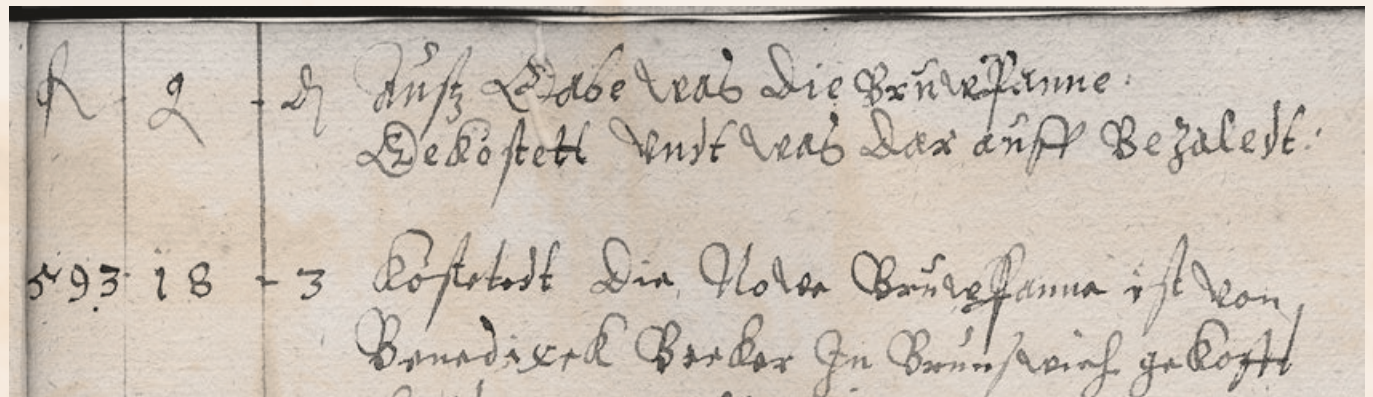 fl g - d Außgabe was Die Bruwpanne
Gekostett undt was Dar auff Bezaledt:
593 18 - 3 Kostetedt Die Nowe Bruwpanne ist von
Benedixck Becker In Brunswich gekofft